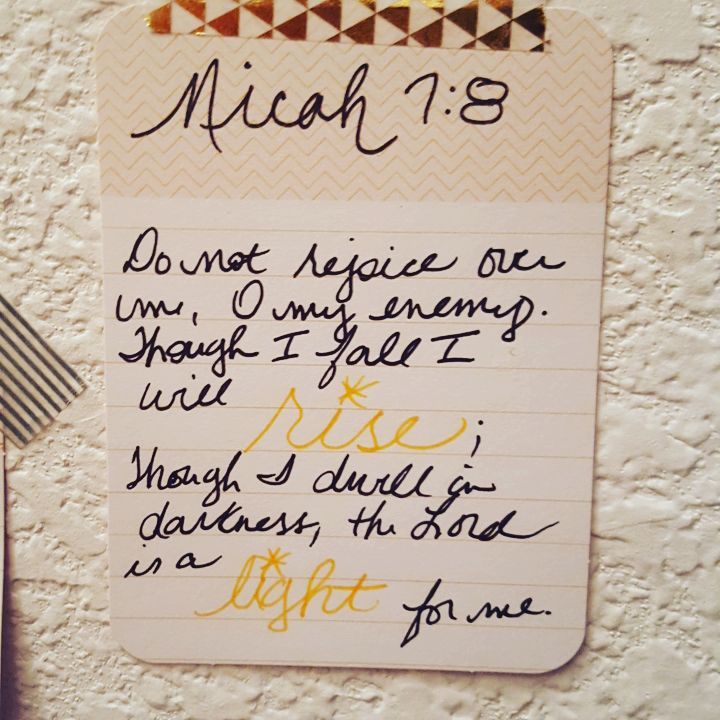 Micah 7:8
Do not rejoice over
me, O my enemy.
Though I fall I
will rise;
Though I dwell in
darkness, the Lord
is a light for me.